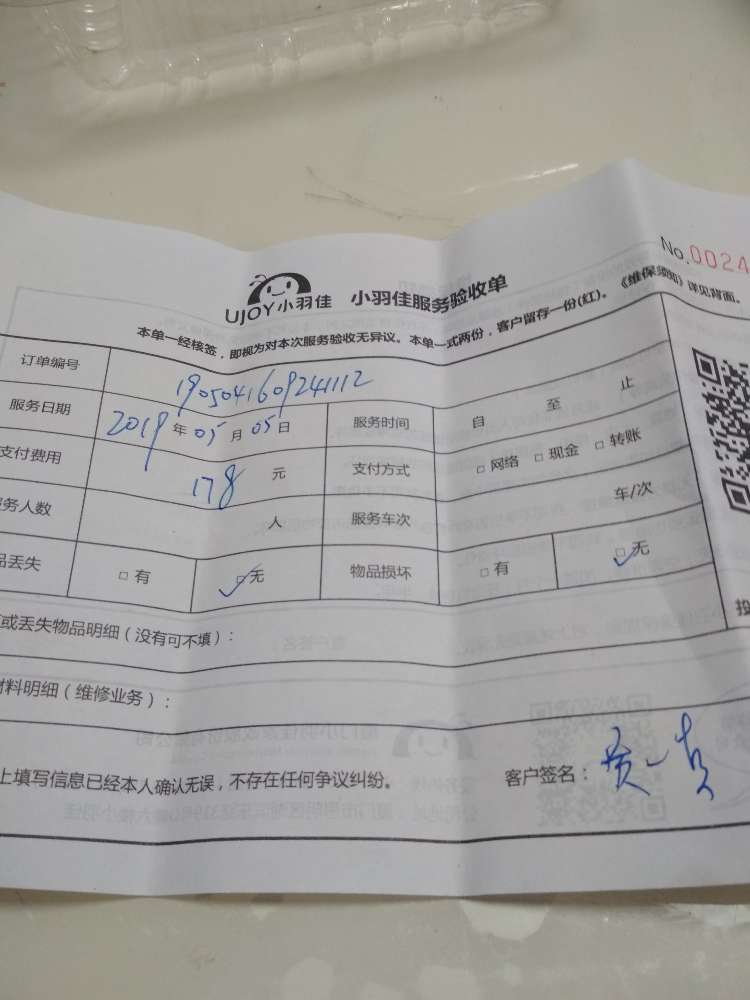 No.0024
UJOY小羽佳 小羽佳服务验收单
本单一经核签，即视为对本次服务验收无异议。本单一式两份，客户留存一份(红)。《维保须知》详见背面。
订单编号 1905041609241112
服务日期 2019年05月05日 服务时间 自 至 止
支付费用 178元 支付方式 □网络 □现金 □转账
务人数 人 服务车次 车/次
品丢失 □有 ☑无 物品损坏 □有 ☑无
或丢失物品明细（没有可不填）：
材料明细（维修业务）：
上填写信息已经本人确认无误，不存在任何争议纠纷。 客户签名：